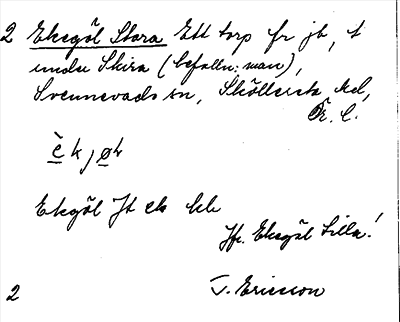 2 Ekegöl Stora Ett torp fr jb, t
under Skira (befolkn: man),
Svennevads sn, Sköllersta hd,
Ör. l.
è k j ø
Ekegöl Jt ek bl
Jfr. Ekegöl Lilla!
2 T. Ericsson